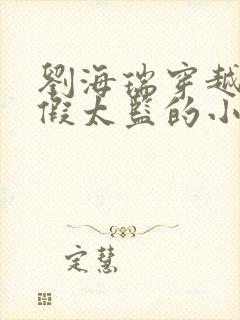 劉海瑞穿越
假太監的小
定慧